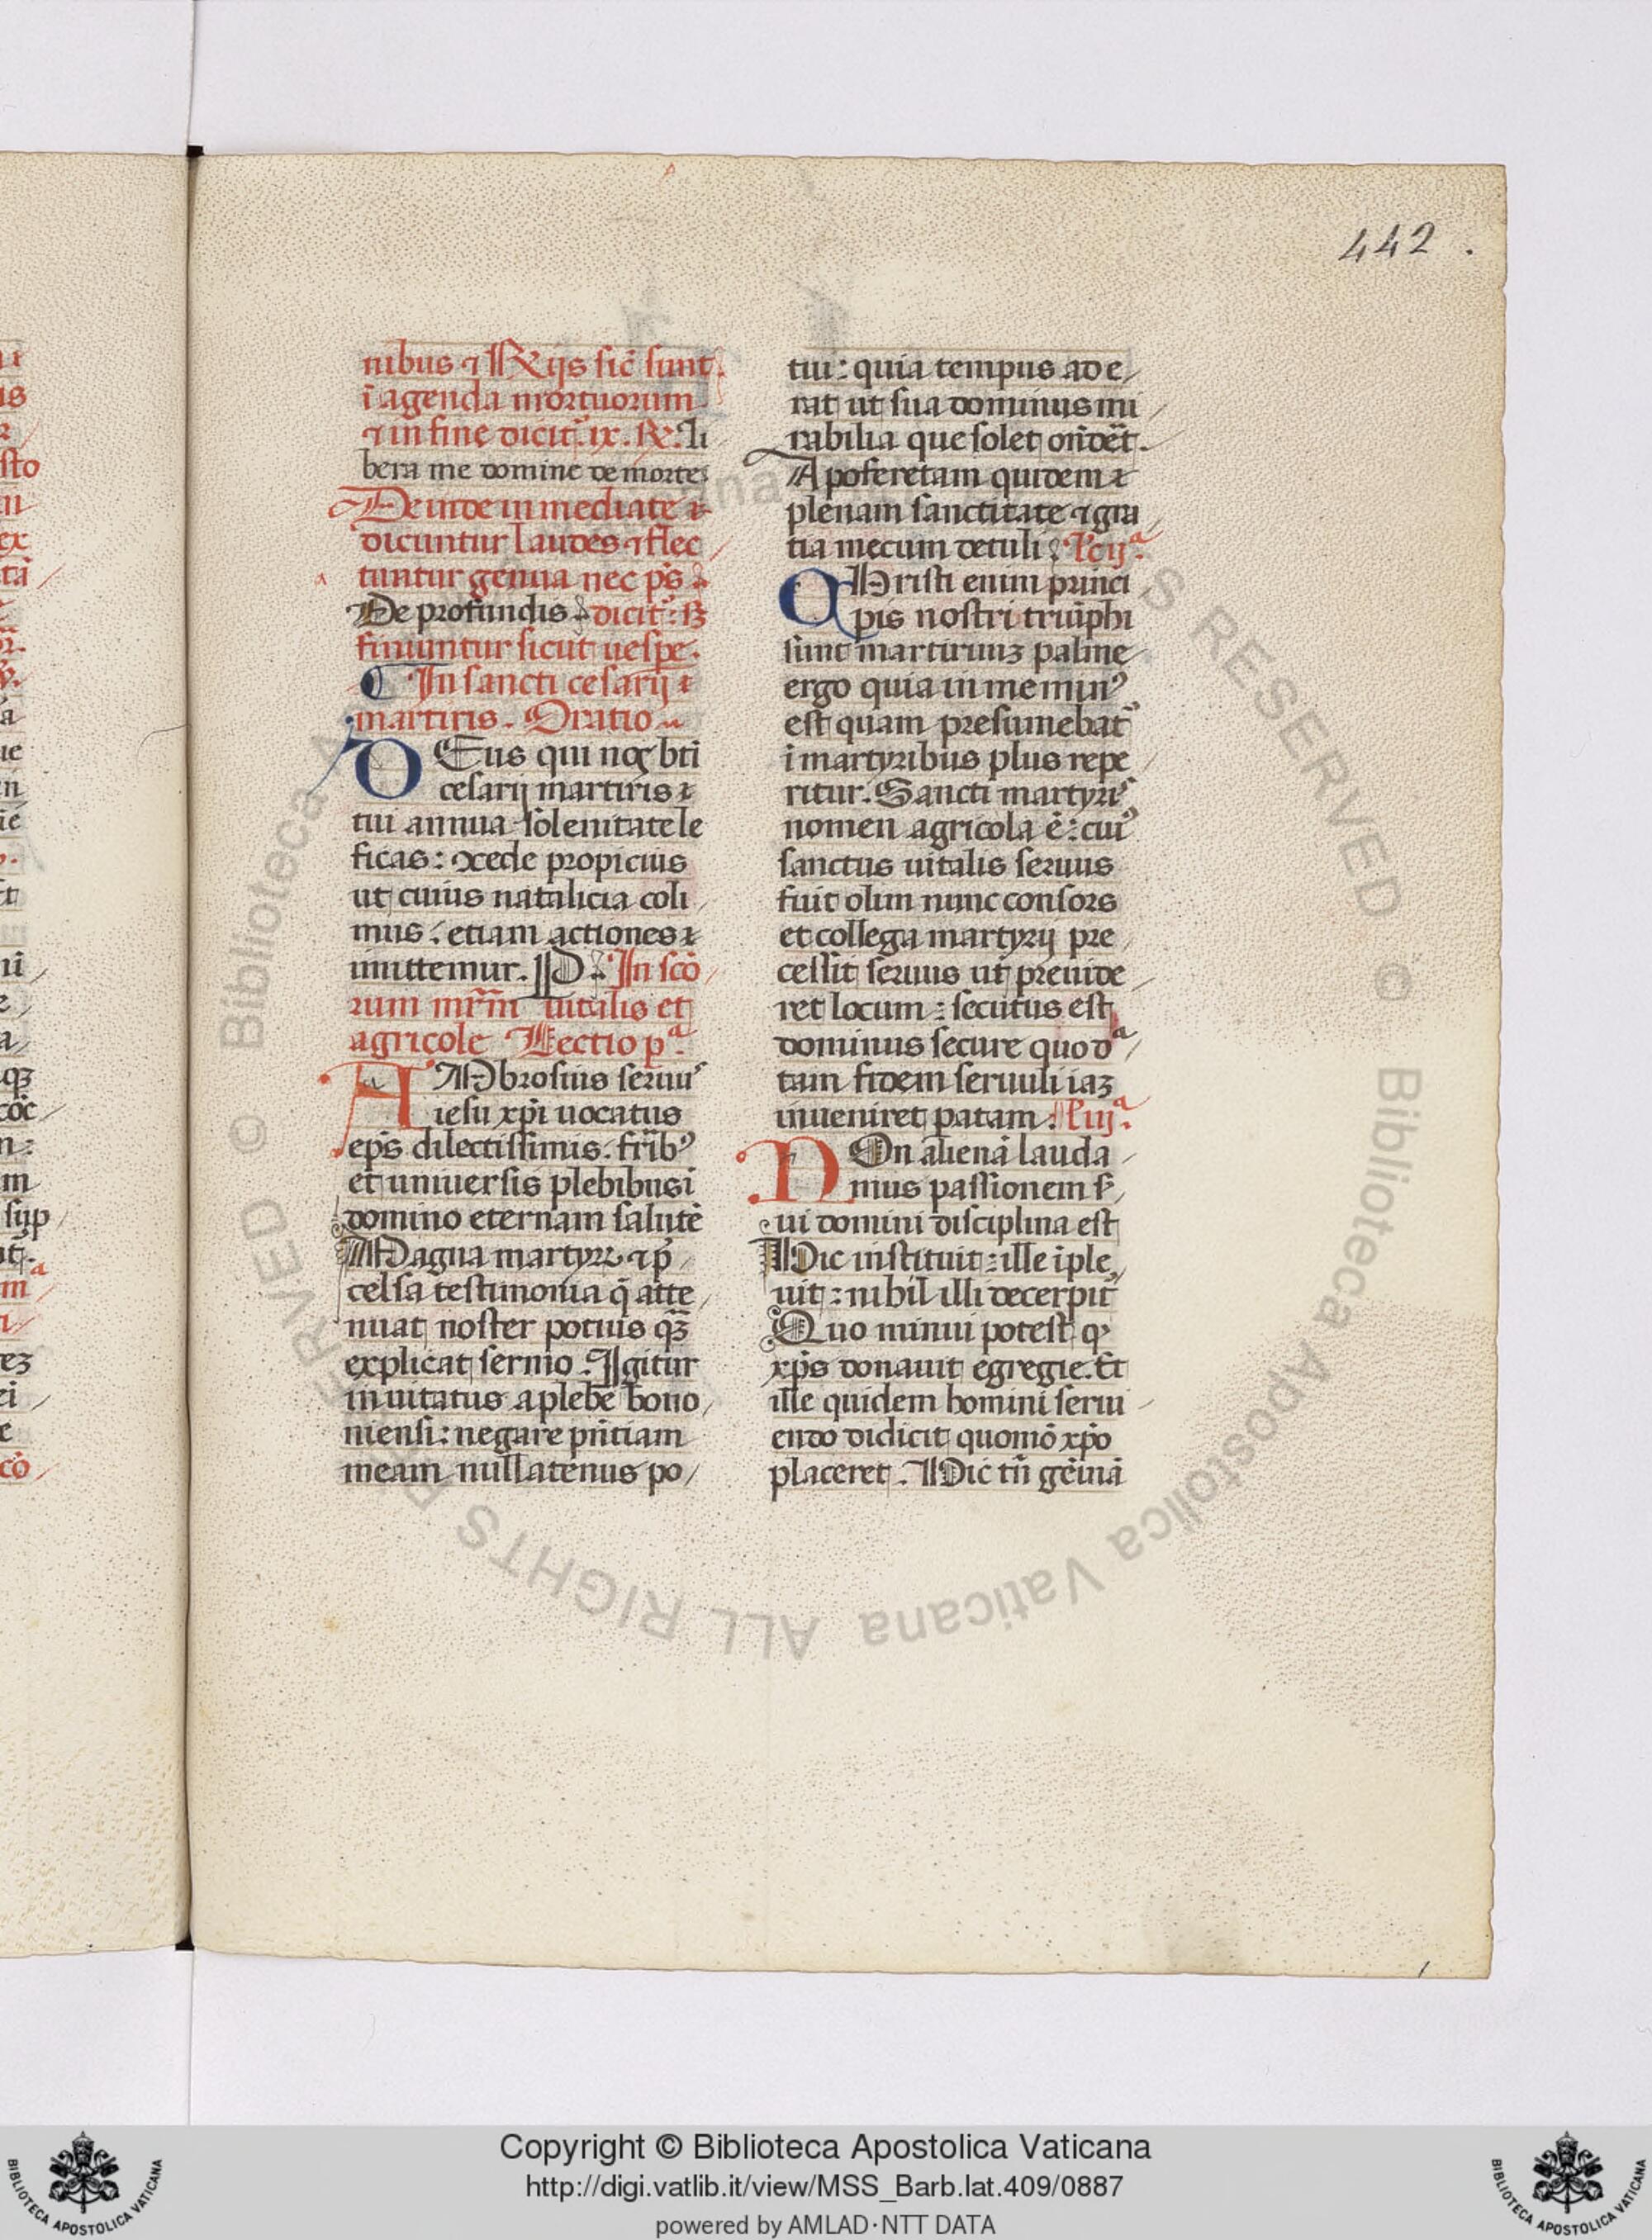 442.
nibus ⁊ ℟ijs sic̄ sunt
ī agenda mortuorum
⁊ in fine dicit᷑. ix. ℟. li
bera me domine de morte
Deinde inmediate
dicuntur laudes ⁊ flec
tuntur genua nec ps̄
De profundis dicit᷑: ⁊
finiuntur sicut uesp̄e.
¶ In sancti cesarij
martiris. Oratio
DEus qui nos bt̄i
cesarij martiris
tui annua solenitate le
tificas: ꝯcede propicius
ut cuius natalicia coli
mus: etiam actiones
imittemur. P. In sc̄o
rum mr̄m̄ uitalis et
agricole Lectio pᵃ.
AMbrosius seruus
iesu xp̄i uocatus
ep̄s dilectissimis. fr̄ibꝰ
et uniuersis plebibus ī
domino eternam salutē
Magna martyꝝ ⁊ p̄
celsa testimonia q̄ atte
nuat noster potius qᷓꝫ
explicat sermo. Igitur
inuitatus a plebe bono
niensi: negare pn̄tiam
meam nullatenus po
tui: quia tempus ade
rat ut sua dominus mi
rabilia que solet on̄det᷑.
Apoferetam quidem
plenam sanctitate ⁊ gra
tia mecum detuli. Lc̄ijᵃ.
CHristi enim princi
pis nostri triūphi
sunt martiriuꝫ palme
ergo quia in me minꝰ
est quam presumebat᷑
ī martyribus plus repe
ritur. Sancti martyris
nomen agricola ē: cuiꝰ
sanctus uitalis seruus
fuit olim nunc consors
et collega martyrij pre
cessit seruus ut preuide
ret locum: secutus est
dominus secure quo dᵃ
tam fidem seruuli iaꝫ
inueniret patam. Liijᵃ.
NOn alienā lauda
mus passionem s̄
ui domini disciplina est
Hic instituit: ille īple
uit: nihil illi decerpit᷑
Quo minui potest qꝫ
xp̄s donauit egregie. Et
ille quidem homini serui
endo didicit quomō xp̄o
placeret. Hic tn̄ gēinā
Copyright © Biblioteca Apostolica Vaticana
http://digi.vatlib.it/view/MSS_Barb.lat.409/0887
powered by AMLAD·NTT DATA
BIBLIOTECA APOSTOLICA VATICANA
BIBLIOTECA APOSTOLICA VATICANA